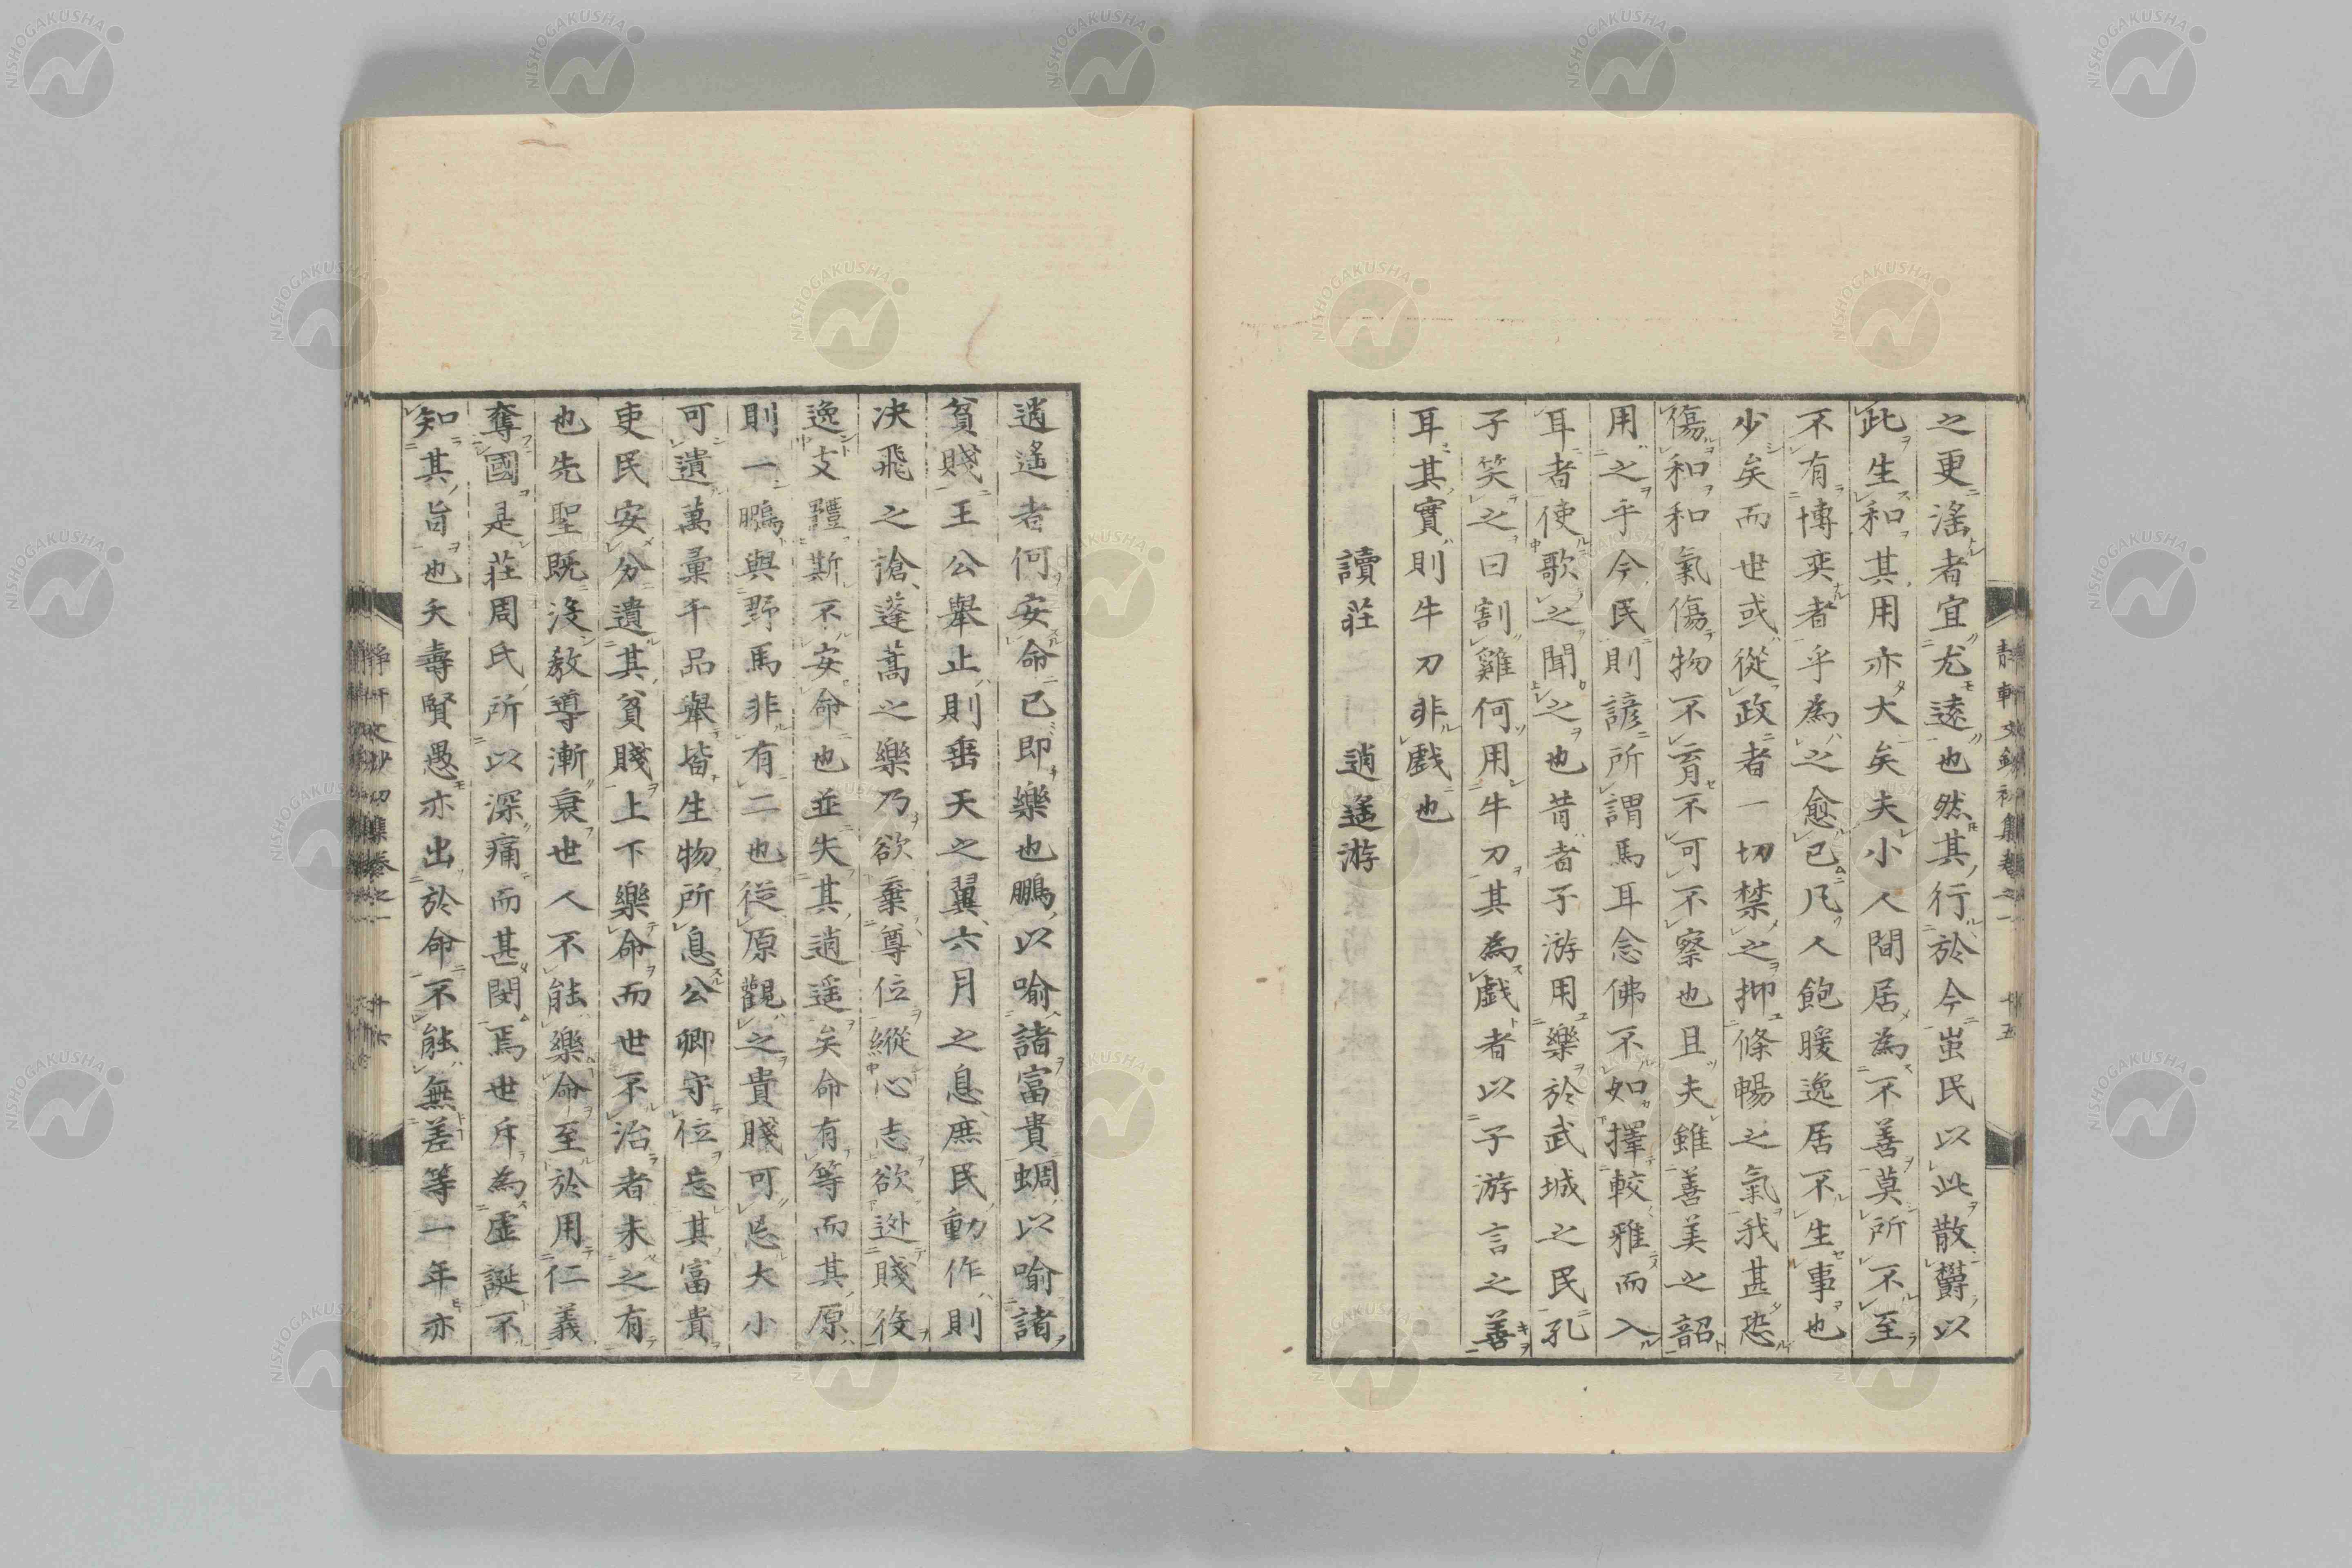 之更滛者宜尤遠也然其行於今蚩民以此散欝以
此生和其用亦大矣夫小人間居為不善莫所不至
不有博奕者乎為之愈已凡人飽暖逸居不生事也
少矣而世或從政者一切禁之抑條暢之氣我甚恐
傷和和氣傷物不育不可不察也且夫雖善美之韶
用之乎今民則諺所謂馬耳念佛不如擇較雅而入
耳者使歌之聞之也昔者子游用樂於武城之民孔
子笑之曰割雞何用牛刀其為戲者以子游言之善
耳其實則牛刀非戲也
讀莊 逍遙游
逍遙者何安命已即樂也鵬以喻諸富貴蜩以喻諸
貧賤王公舉止則垂天之翼六月之息庶民動作則
决飛之搶蓬蒿之樂乃欲棄尊位縱心志欲迯賤役
逸支體斯不安命也並失其逍遥矣命有等而其原
則一鵬與野馬非有二也從原觀之貴賤可忘大小
可遺萬彙千品舉皆生物所息公卿守位忘其富貴
吏民安分遺其貧賤上下樂命而世不治者未之有
也先聖既沒教導漸衰世人不能樂命至於用仁義
奪國是莊周氏所以深痛而甚閔焉世斥為虛誕不
知其旨也夭壽賢愚亦出於命不能無差等一年亦
NISHOGAKUSHA